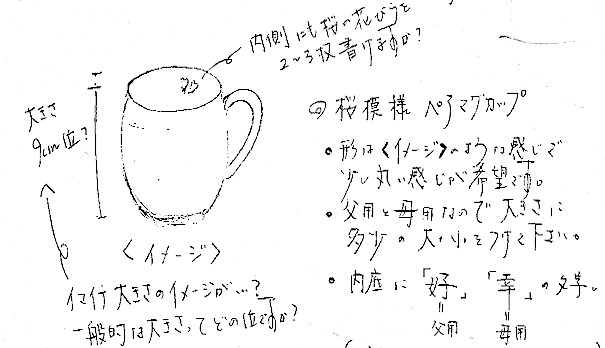 内側にも桜の花びらを
2~3枚書けますか?
大きさ
9cm位?
〈イメージ〉
大きさのイメージが…?
一般的な大きさってどの位ですか?
桜模様 ペアマグカップ
・形は〈イメージ〉のような感じで
少し丸い感じが希望です。
・父用と母用なので大きさに
多少の大小をつけて下さい。
・内底に「好」「幸」の文字。
父用 母用